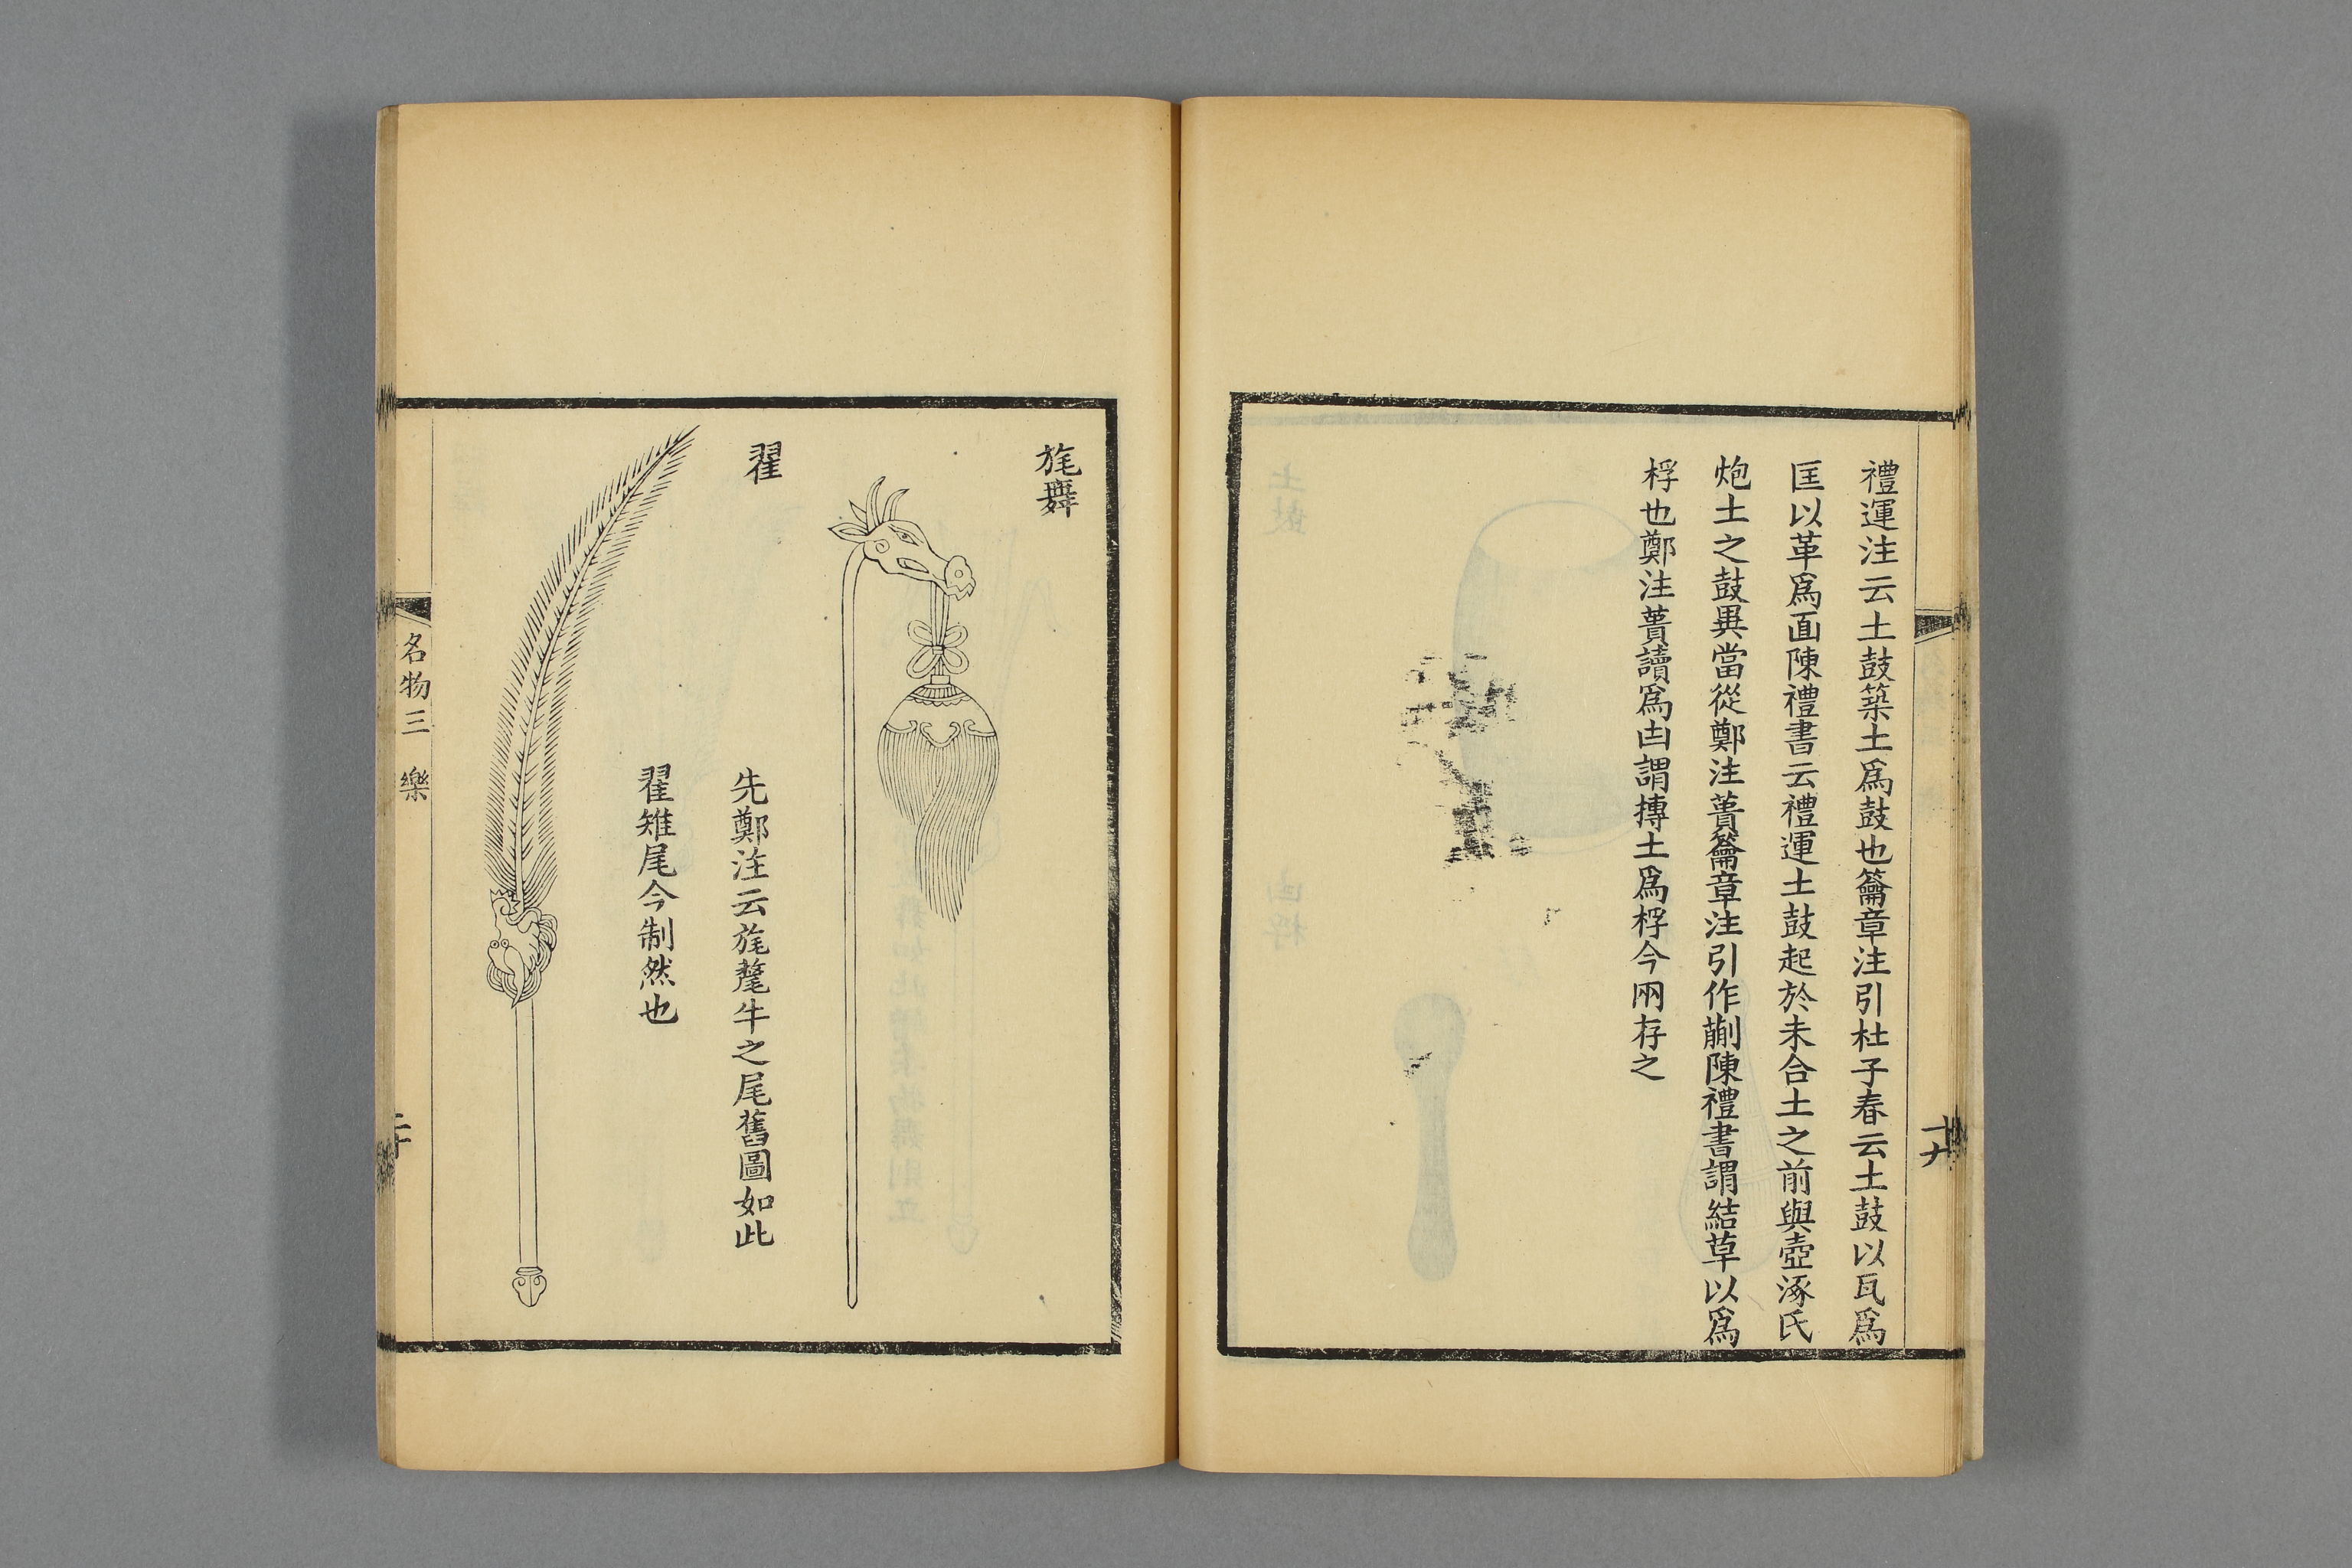 禮運注云土鼓築土爲鼓也籥章注引杜子春云土鼓以瓦爲
匡以革爲面陳禮書云禮運土鼓起於未合土之前與壺涿氏
炮土之鼓異當從鄭注蕢籥章注引作蒯陳禮書謂結草以爲
桴也鄭注蕢讀爲凷謂摶土爲桴今兩存之
十九
旄舞
翟
先鄭注云旄氂牛之尾舊圖如此
翟雉尾今制然也
名物三 樂
二十